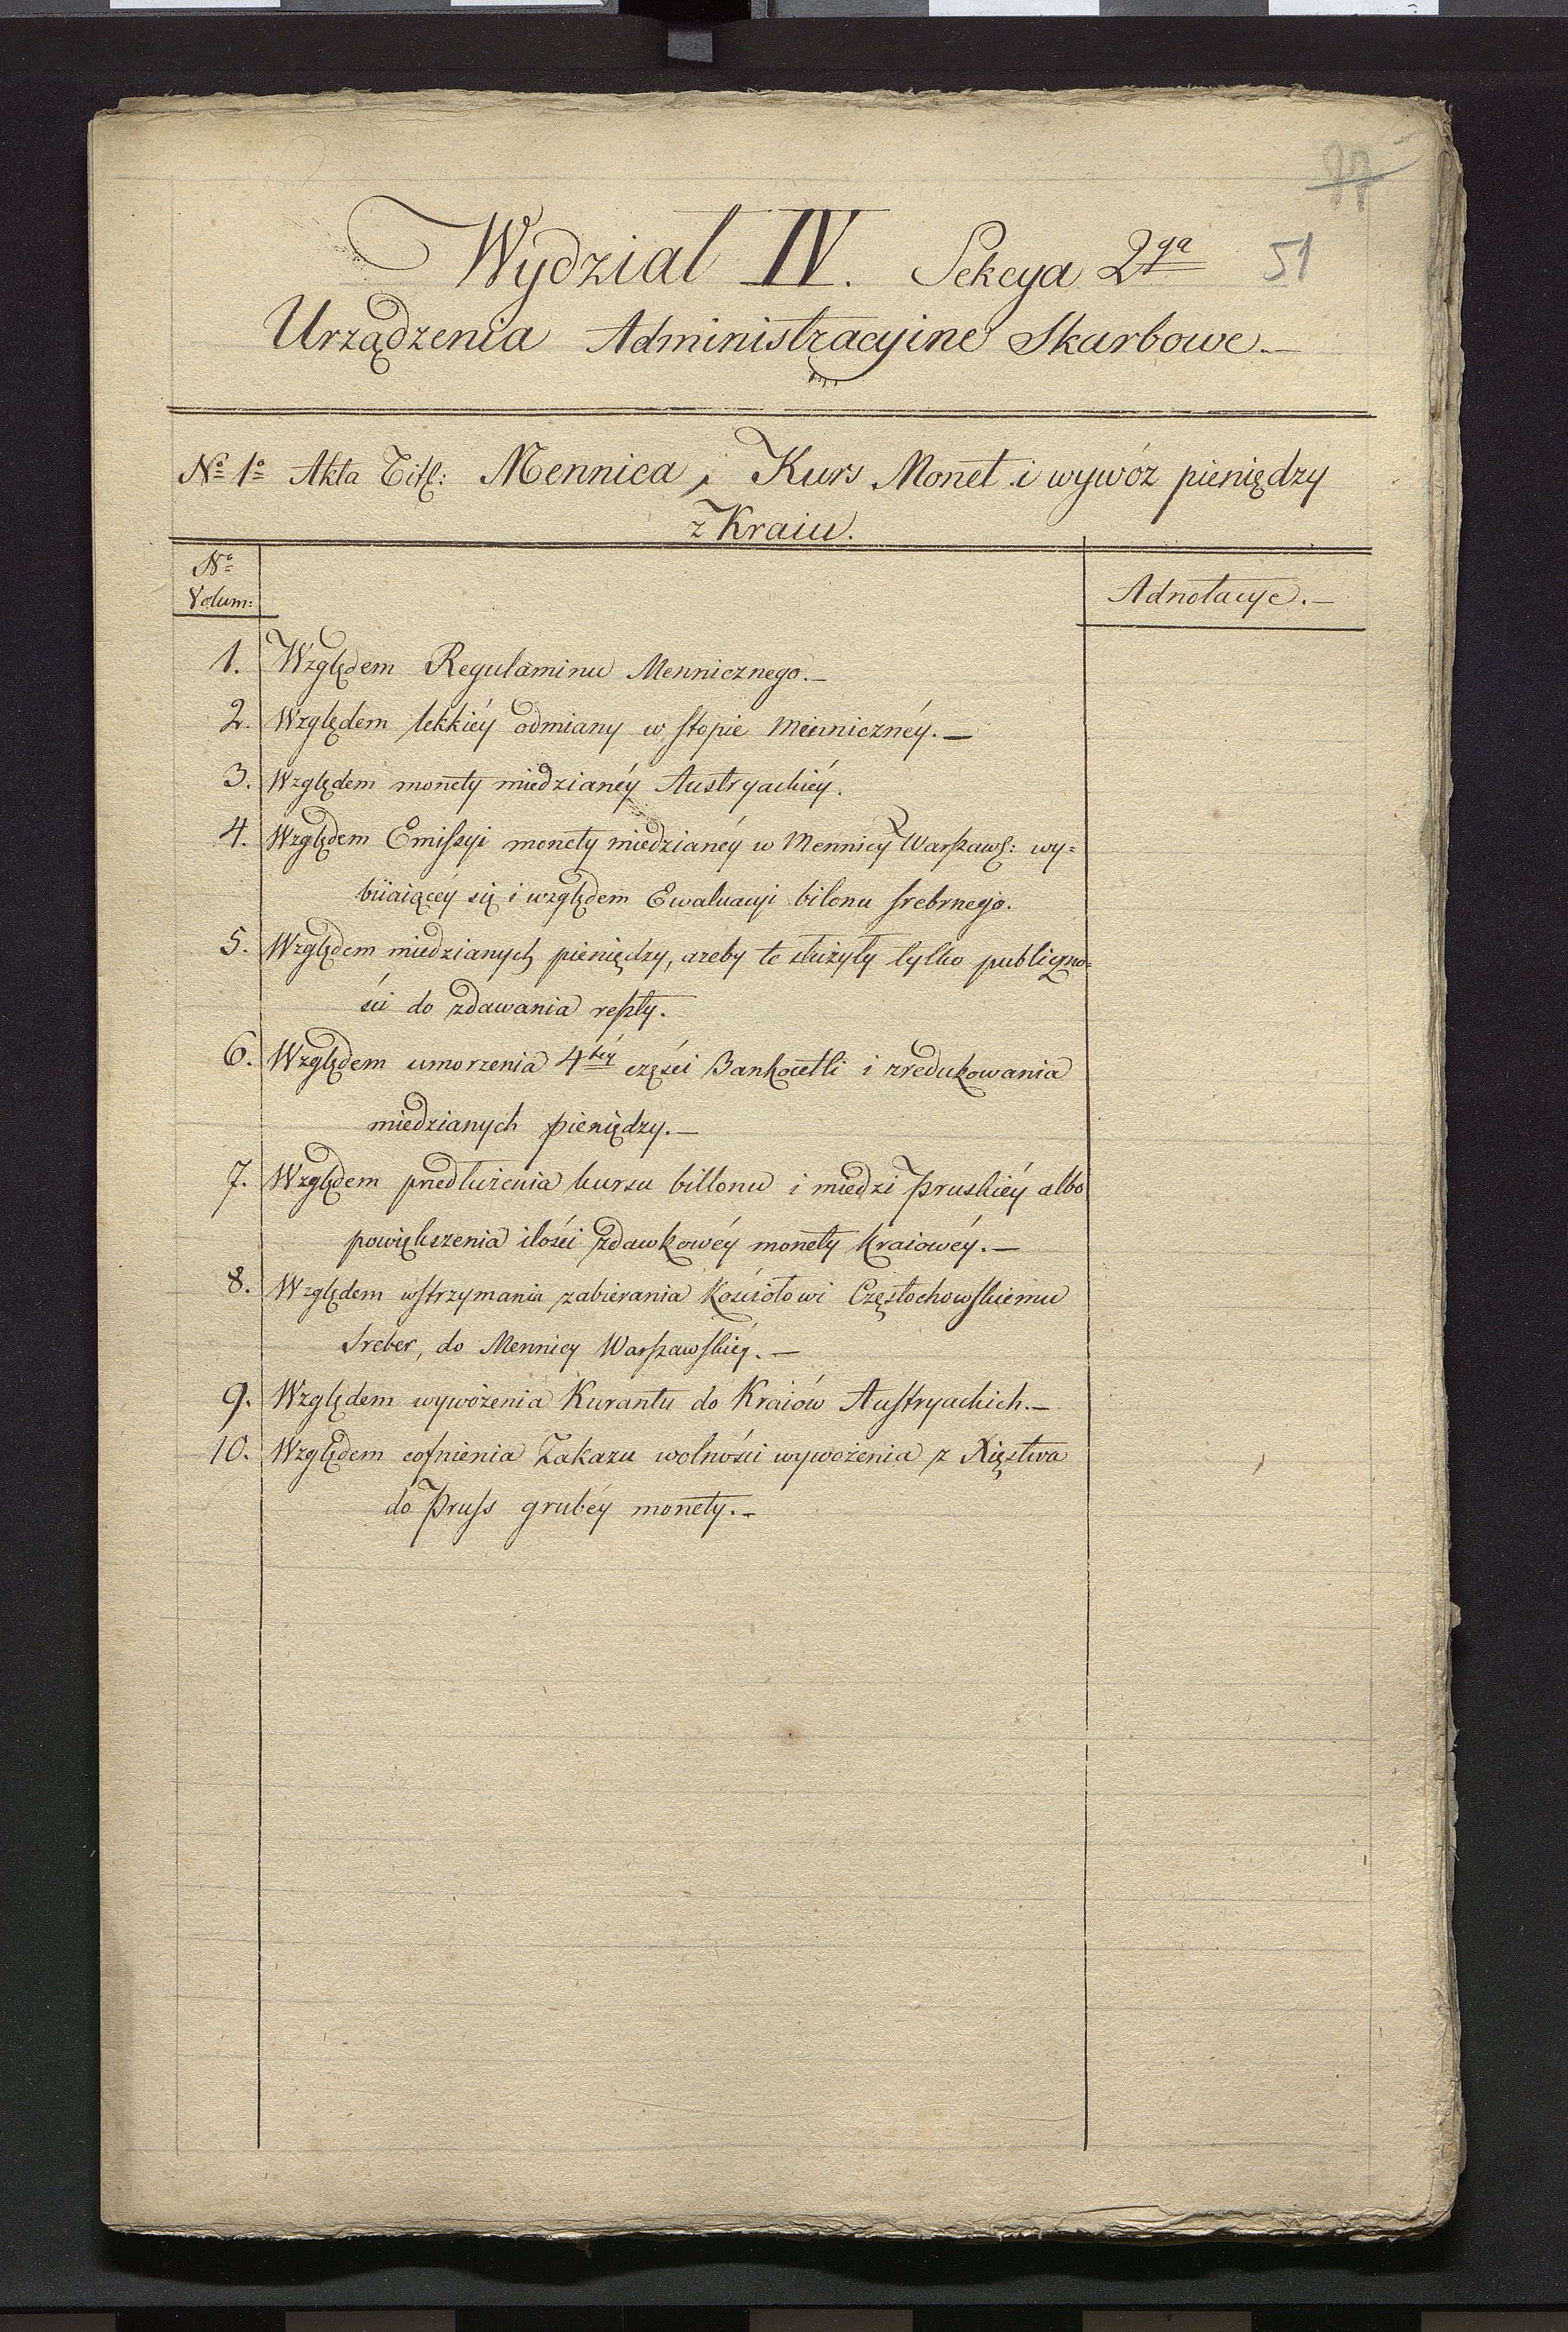 77
Wydział IV. Sekcya 2ga 51
Urządzenia Administracyine Skarbowe.—
No 1o Akta Titl: Mennica, Kurs Monet i wywóz pieniędzy
z Kraiu.
No
Volum:
Adnotacye.—
1. Względem Regulaminu Mennicznego.—
2. Względem lekkiéy odmiany w stopie Mennicznéy.—
3. Względem monety miedzianéy Austryackiéy.
4. Względem Emissyi monety miedzianéy w Mennicy Warszaws: wy=
biiaiącéy się i względem Ewaluacyi bilonu srebrnego.
5. Względem miedzianych pieniędzy, ażeby te służyły tylko publiczno=
ści do zdawania reszty.
6. Względem umorzenia 4téy części Bankocetli i zredukowania
miedzianych pieniędzy.—
7. Względem przedłużenia kursu billonu i miedzi Pruskiéy albo
powiększenia ilości zdawkowéy monety kraiowéy.—
8. Względem wstrzymania zabierania Kościołowi Częstochowskiemu
Sreber, do Mennicy Warszawskiéy.—
9. Względem wywożenia Kurantu do Kraiów Austryackich.—
10. Względem cofnienia Zakazu wolności wywożenia z Xięstwa
do Pruss grubéy monety.—